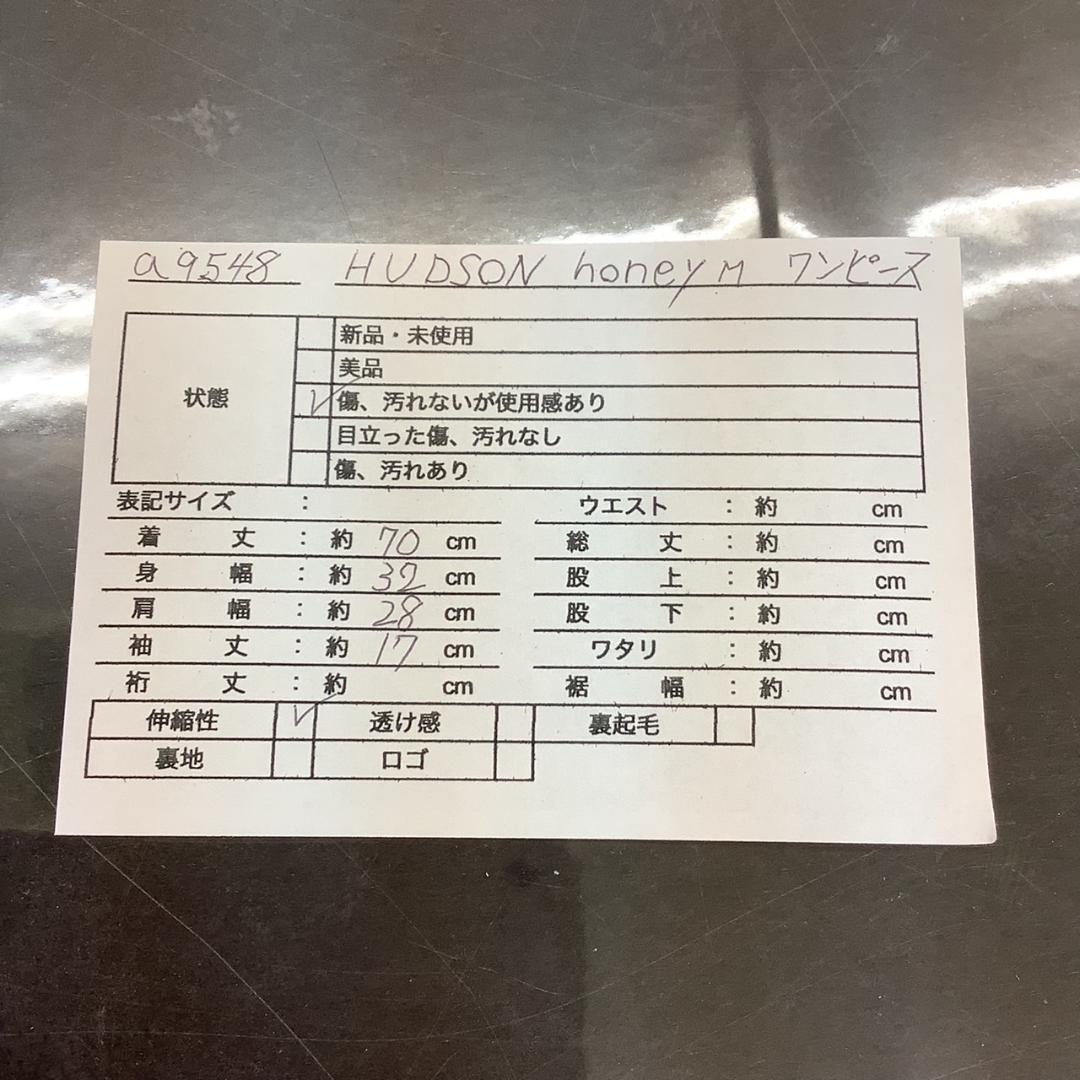 a9548 HUDSON honey M ワンピース
状態
新品・未使用
美品
傷、汚れないが使用感あり
目立った傷、汚れなし
傷、汚れあり
表記サイズ : ウエスト : 約 cm
着丈 : 約 70 cm 総丈 : 約 cm
身幅 : 約 32 cm 股上 : 約 cm
肩幅 : 約 28 cm 股下 : 約 cm
袖丈 : 約 17 cm ワタリ : 約 cm
裄丈 : 約 cm 裾幅 : 約 cm
伸縮性 ✓ 透け感 裏起毛
裏地 ロゴ